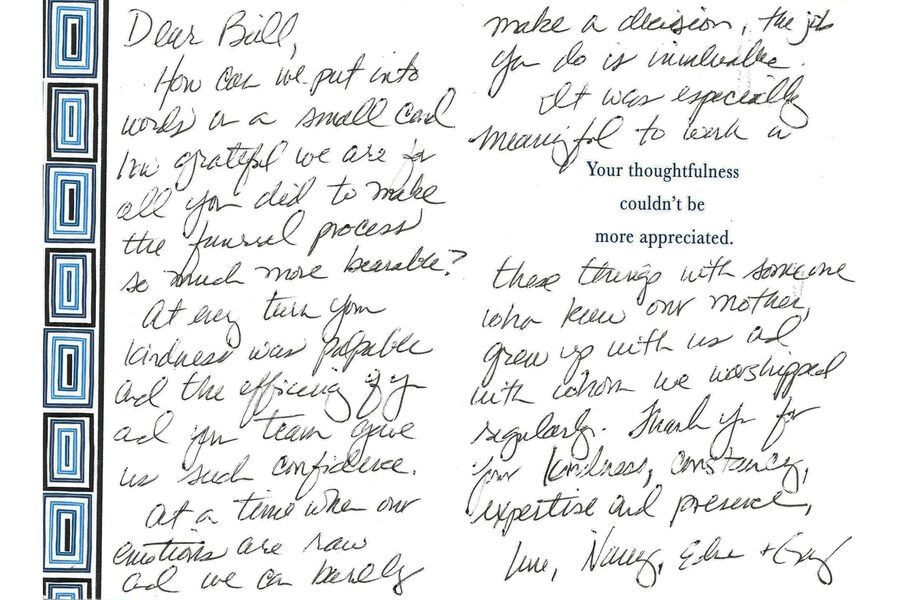 Dear Bill,
How can we put into
words in a small card
how grateful we are for
all you did to make
the funeral process
so much more bearable?
At every turn your
kindness was palpable
and the efficiency of you
and your team gave
us such confidence.
At a time when our
emotions are raw
and we can barely
make a decision, the job
you do is invaluable.
It was especially
meaningful to work on
Your thoughtfulness
couldn't be
more appreciated.
these things with someone
who knew our mother,
grew up with us and
with whom we worshipped
regularly. Thank you for
your kindness, constancy,
expertise and presence,
Love, Nancy, +